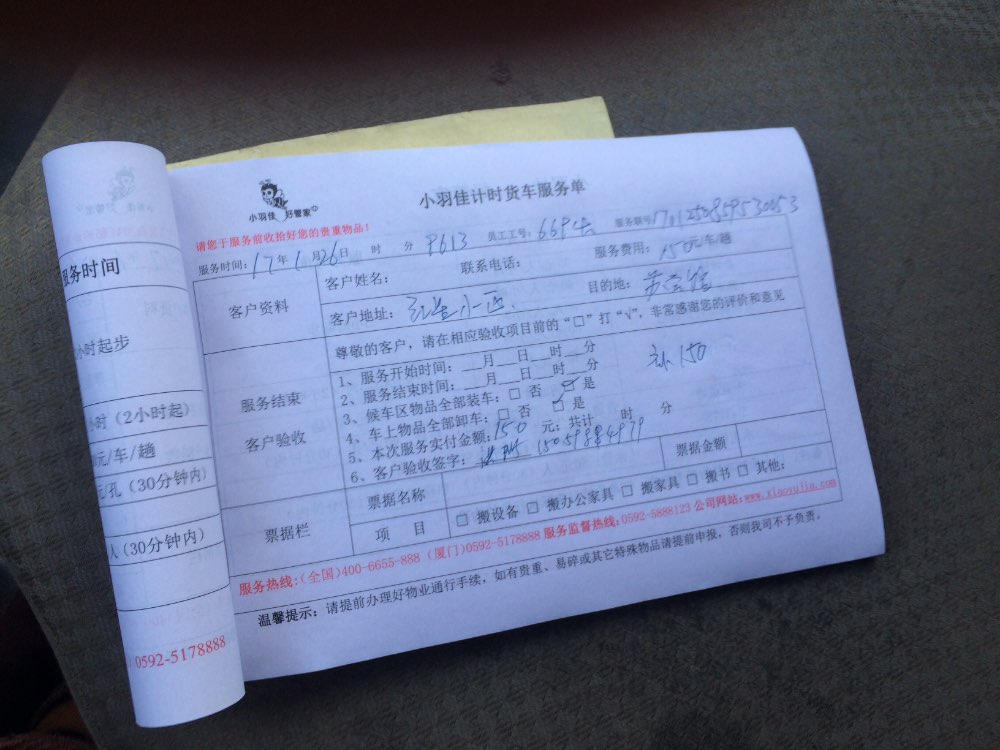 小羽佳 好管家
小羽佳计时货车服务单
请您于服务前收拾好您的贵重物品！
服务时间：17年1月26日 时 分 P613 员工工号：6694 服务联号
客户资料
客户姓名： 联系电话： 服务费用：150元/车/趟
客户地址： 目的地：
服务结束
客户验收
尊敬的客户，请在相应验收项目前的“□”打“√”，非常感谢您的评价和意见
1、服务开始时间：__月__日__时__分
2、服务结束时间：__月__日__时__分
3、候车区物品全部装车：□ 否 ☑ 是
4、车上物品全部卸车：□ 否 □ 是
5、本次服务实付金额：150 元；共计 时 分
6、客户验收签字： 15059884979
150
票据栏
票据名称
票据金额
项 目
□ 搬设备 □ 搬办公家具 □ 搬家具 □ 搬书 □ 其他：
服务热线：（全国）400-6655-888 （厦门）0592-5178888 服务监督热线：0592-5888123 公司网站：www.xiaoyujia.com
温馨提示：请提前办理好物业通行手续，如有贵重、易碎或其它特殊物品请提前申报，否则我司不予负责。
服务时间
小时起步
小时（2小时起）
元/车/趟
元/孔（30分钟内）
人（30分钟内）
0592-5178888